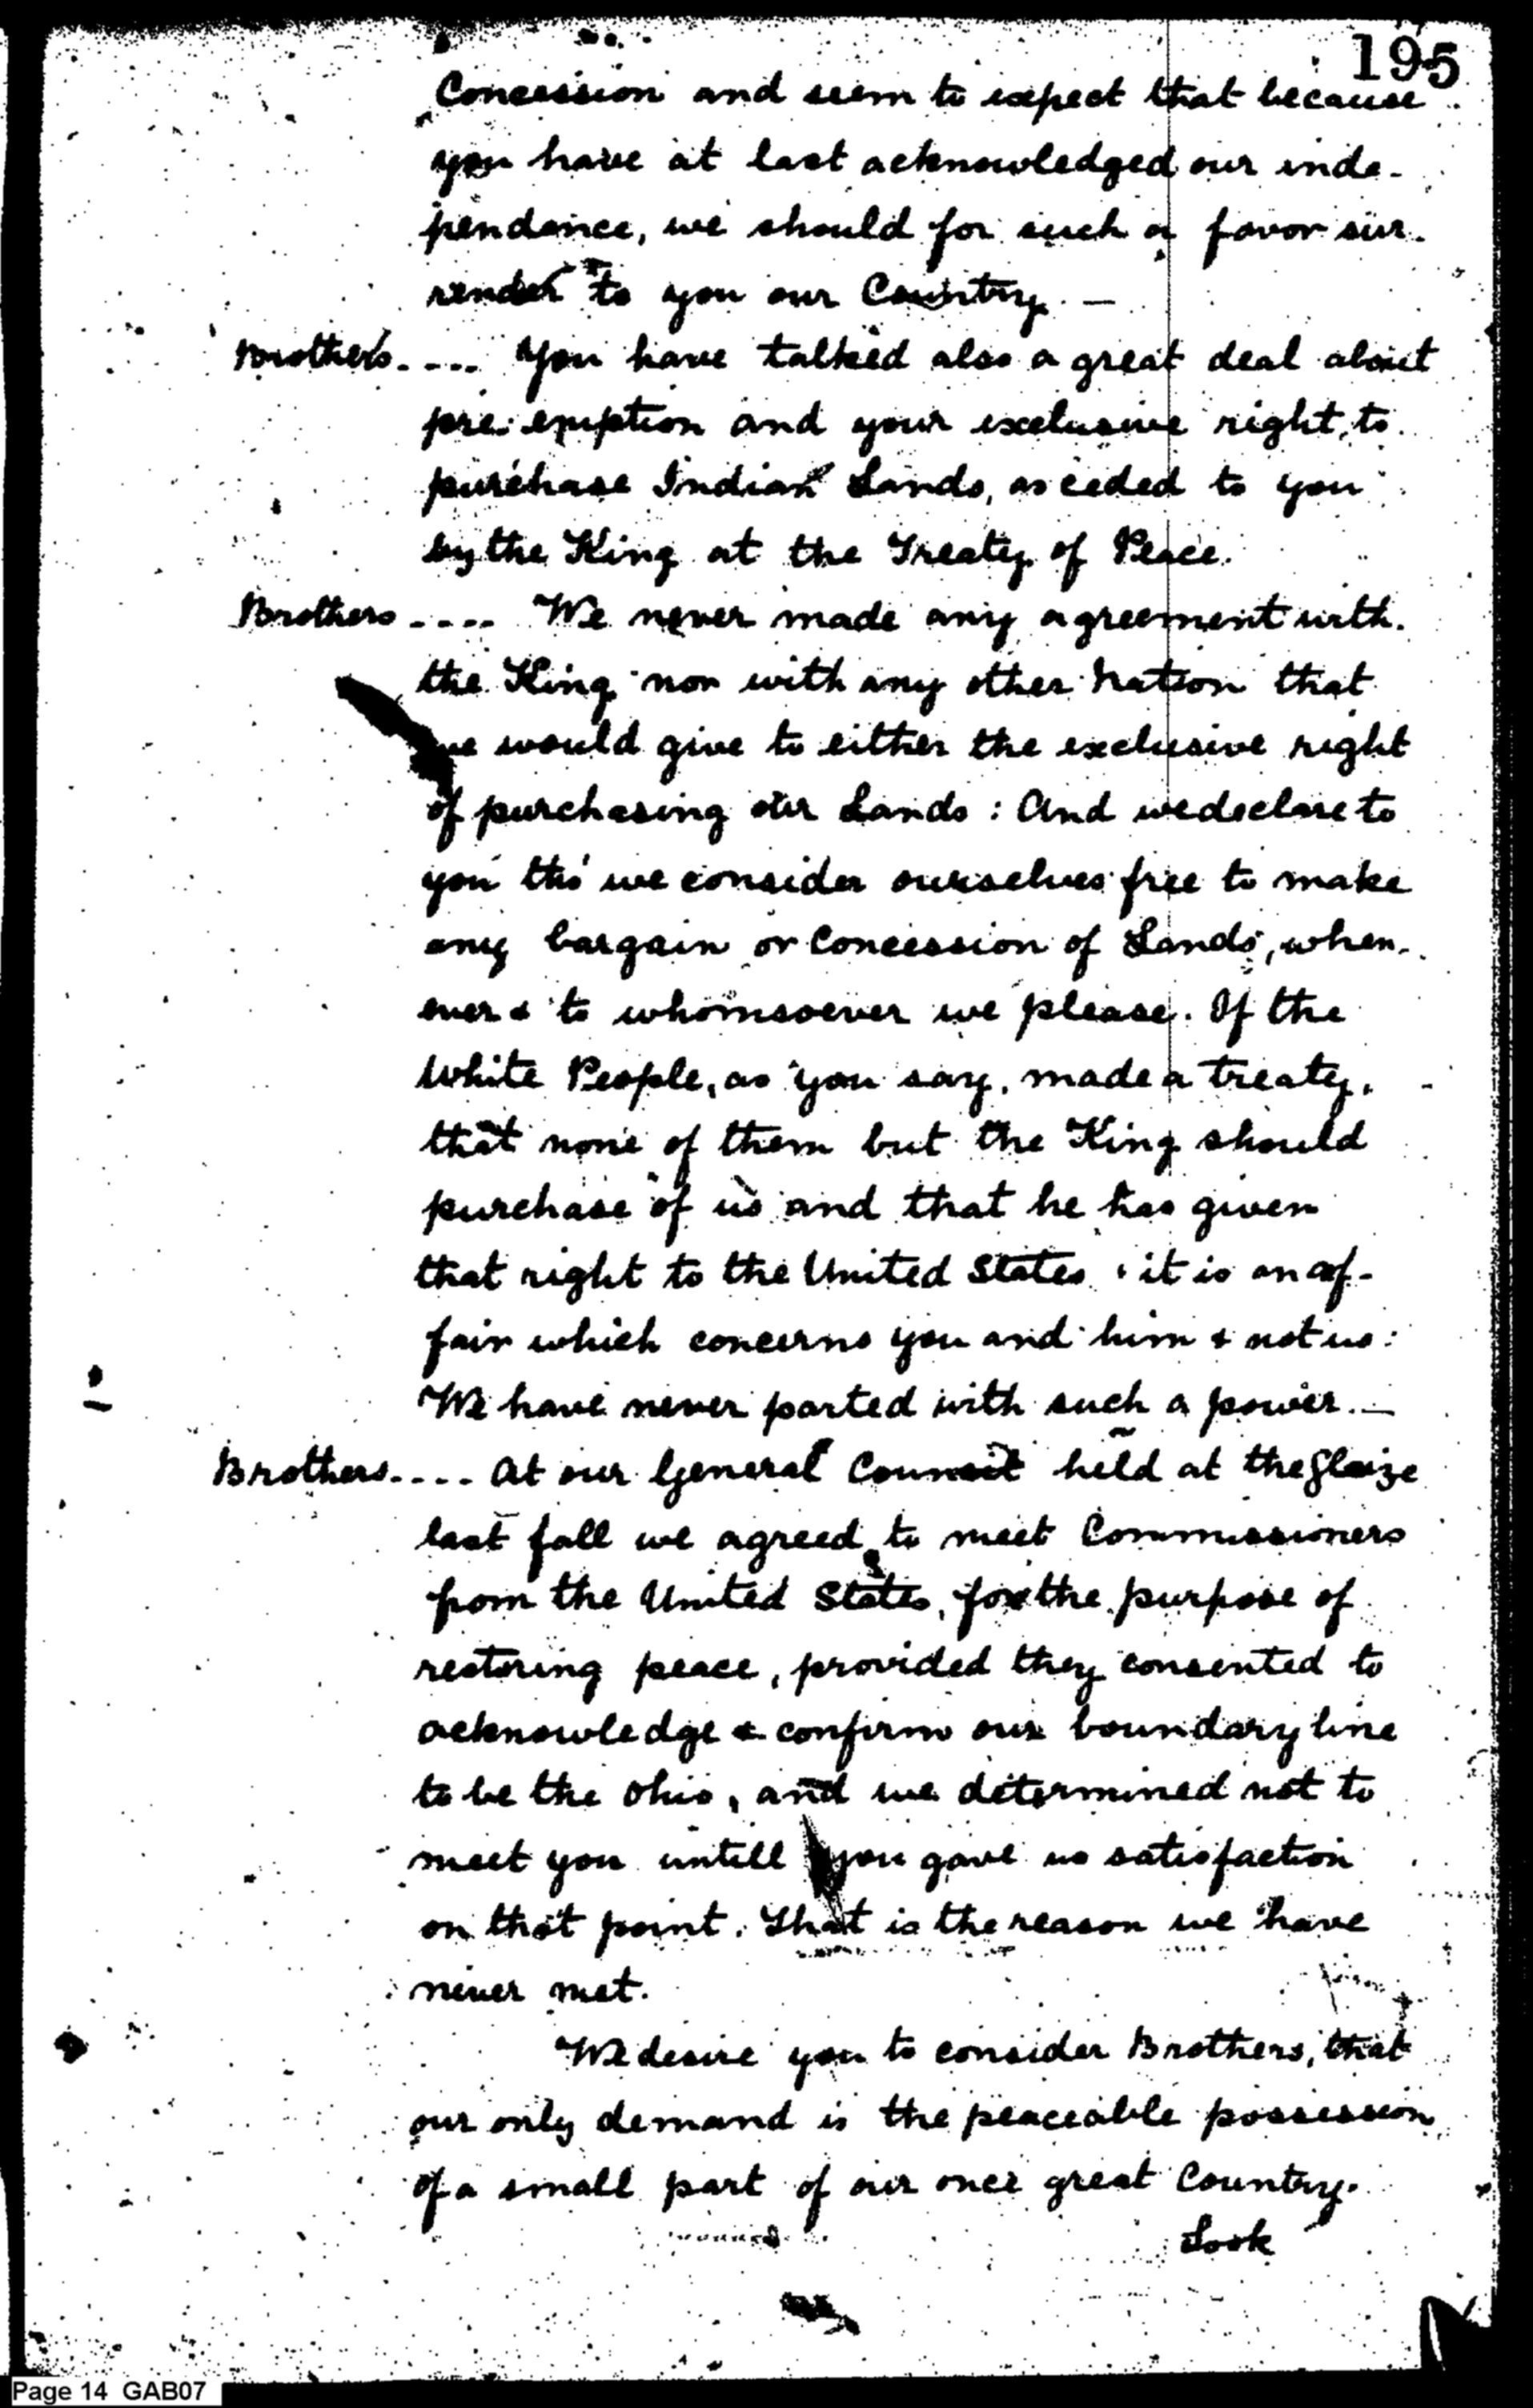 195
Concession and seem to expect that because
you have at last acknowledged our inde-
pendance, we should for such a favor sur-
render to you our Country. —
Brothers. .... You have talked also a great deal about
pre-emption and your exclusive right, to
purchase Indian Lands, as ceded to you
by the King at the Treaty of Peace.
Brothers .... We never made any agreement with
the King nor with any other Nation that
we would give to either the exclusive right
of purchasing our Lands : And we declare to
you tho' we consider ourselves free to make
any bargain or Concession of Lands, when-
ever & to whomsoever we please. If the
White People, as you say, made a treaty,
that none of them but the King should
purchase of us and that he has given
that right to the United States, it is an af-
fair which concerns you and him & not us:
We have never parted with such a power. —
Brothers.... At our General Council held at the Glaize
last fall we agreed to meet Commissioners
from the United States, for the purpose of
restoring peace, provided they consented to
acknowledge & confirm our boundary line
to be the Ohio, and we determined not to
meet you untill you gave us satisfaction
on that point. That is the reason we have
never met.
We desire you to consider Brothers, that
our only demand is the peaceable possession
of a small part of our once great Country.
Look
Page 14 GAB07